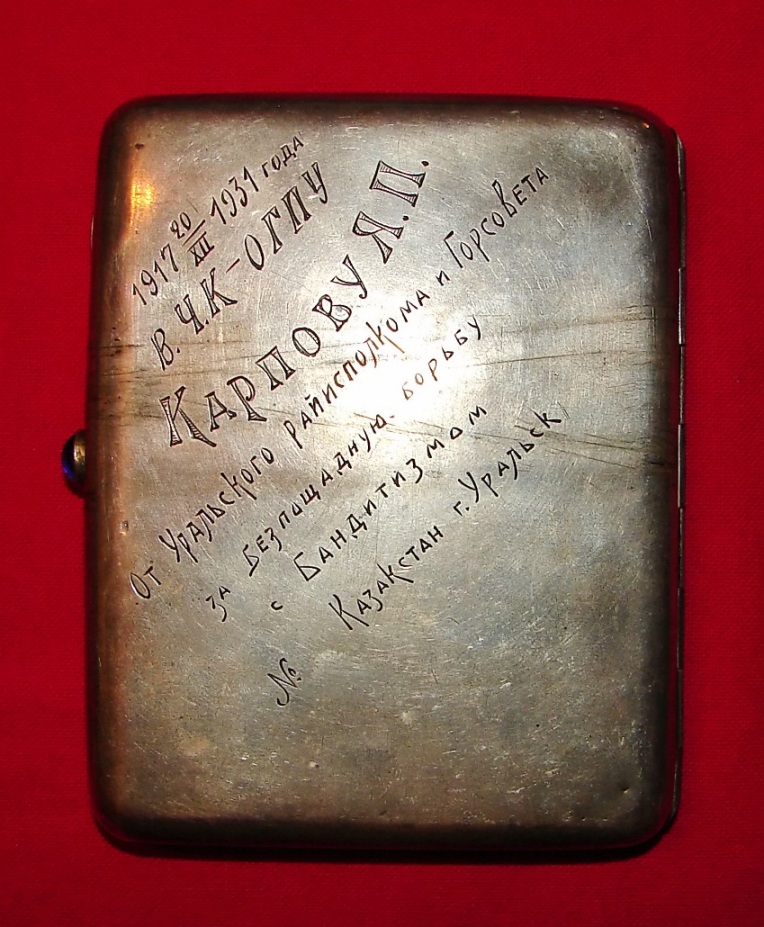 1917 20/XII 1931 года
В. Ч.К-ОГПУ
Карпову Я.П.
От Уральского райисполкома и Горсовета
за Безпощадную борьбу
с Бандитизмом
Казакстан г. Уральск
№